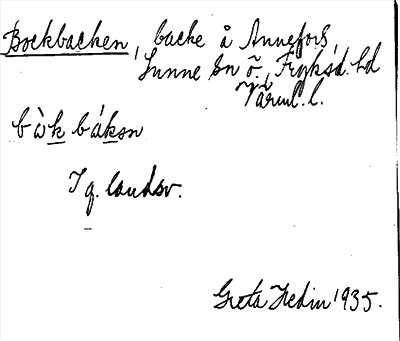 Bockbacken, backe å Annefors,
Sunne sn ö. Fryksd. hd
Värml. l.
bàk báksn
I g. landsv.
Greta Hedin 1935.